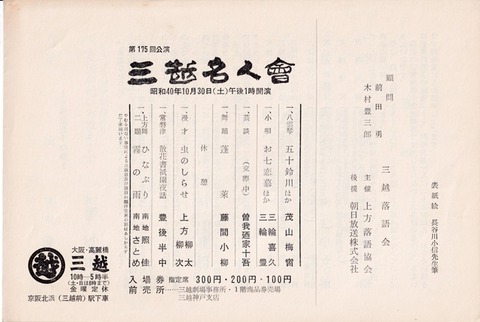 第175回公演
三越名人會
昭和40年10月30日(土)午後1時開演
一、八雲琴 五十鈴川ほか 茂山梅宿
一、小唄 お七恋慕ほか 三輪喜久
三輪豊
一、芸談 (交渉中) 曽我廼家十吾
一、舞踊 蓬莱 藤間小柳
休憩
一、漫才 虫のしらせ 上方柳太
柳次
一、常磐津 豊後半中
一、上方舞 ひなぶり 南地照佳
二題 露の雨 南地さとめ
入場券 指定席 300円・200円・100円
前売所 三越劇場事務所・1階商品券売場
三越神戸支店
大阪・高麗橋
越 三越
10時―5時半
(土・日は6時まで)
金曜定休
京阪北浜(三越前)駅下車
表紙絵 長谷川小信先生筆
三越落語会
主催 上方落語協会
後援 朝日放送株式会社
顧問 前田勇
木村豊三郎